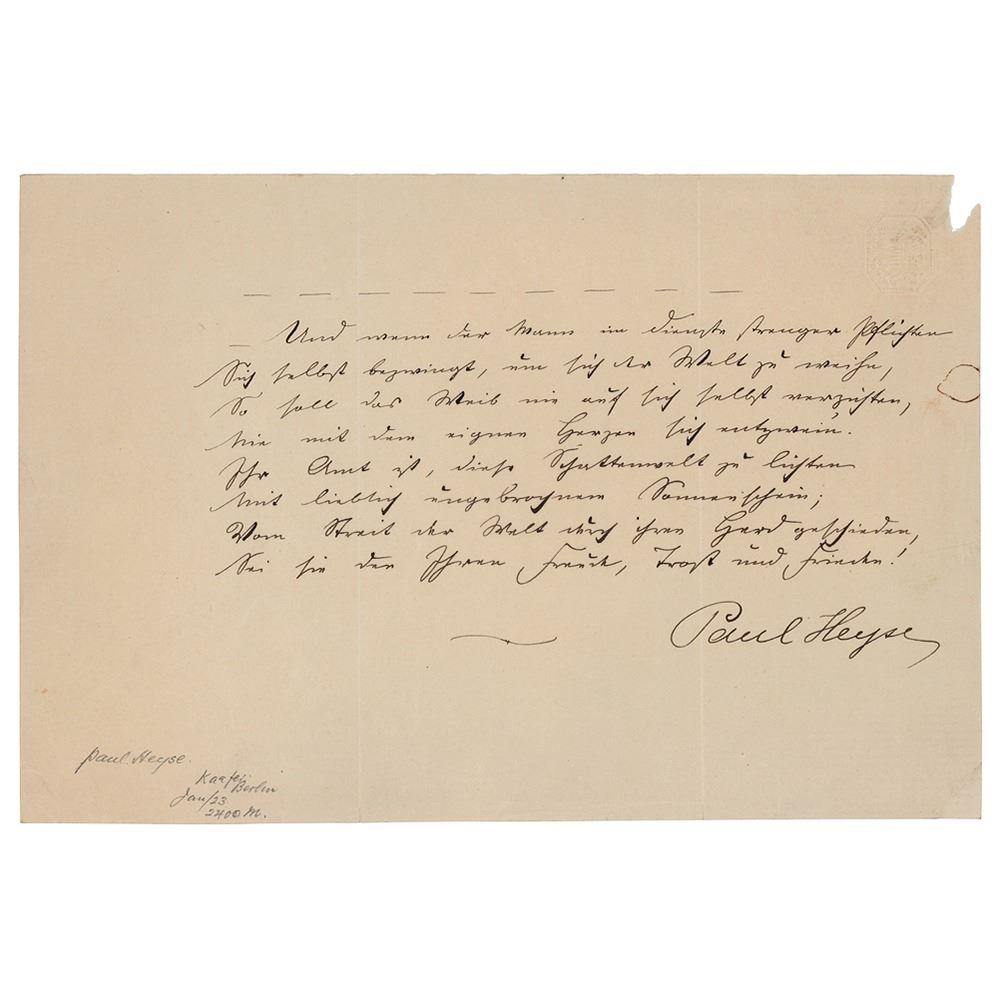 — — — — — — — — —
— Und wenn der Mann im Dienste strenger Pflichten
Sich selbst bezwingt, um sich der Welt zu weihn,
So soll das Weib nie auf sich selbst verzichten,
Nie mit dem eignen Herzen sich entzwein.
Ihr Amt ist, diese Schattenwelt zu lichten
Mit lieblich ungebrochnem Sonnenschein;
Vom Streit der Welt durch ihren Herd geschieden,
Sei sie den Ihren Freude, Trost und Frieden!
Paul Heyse
Paul Heyse.
Berlin
Jan/23
2400 M.